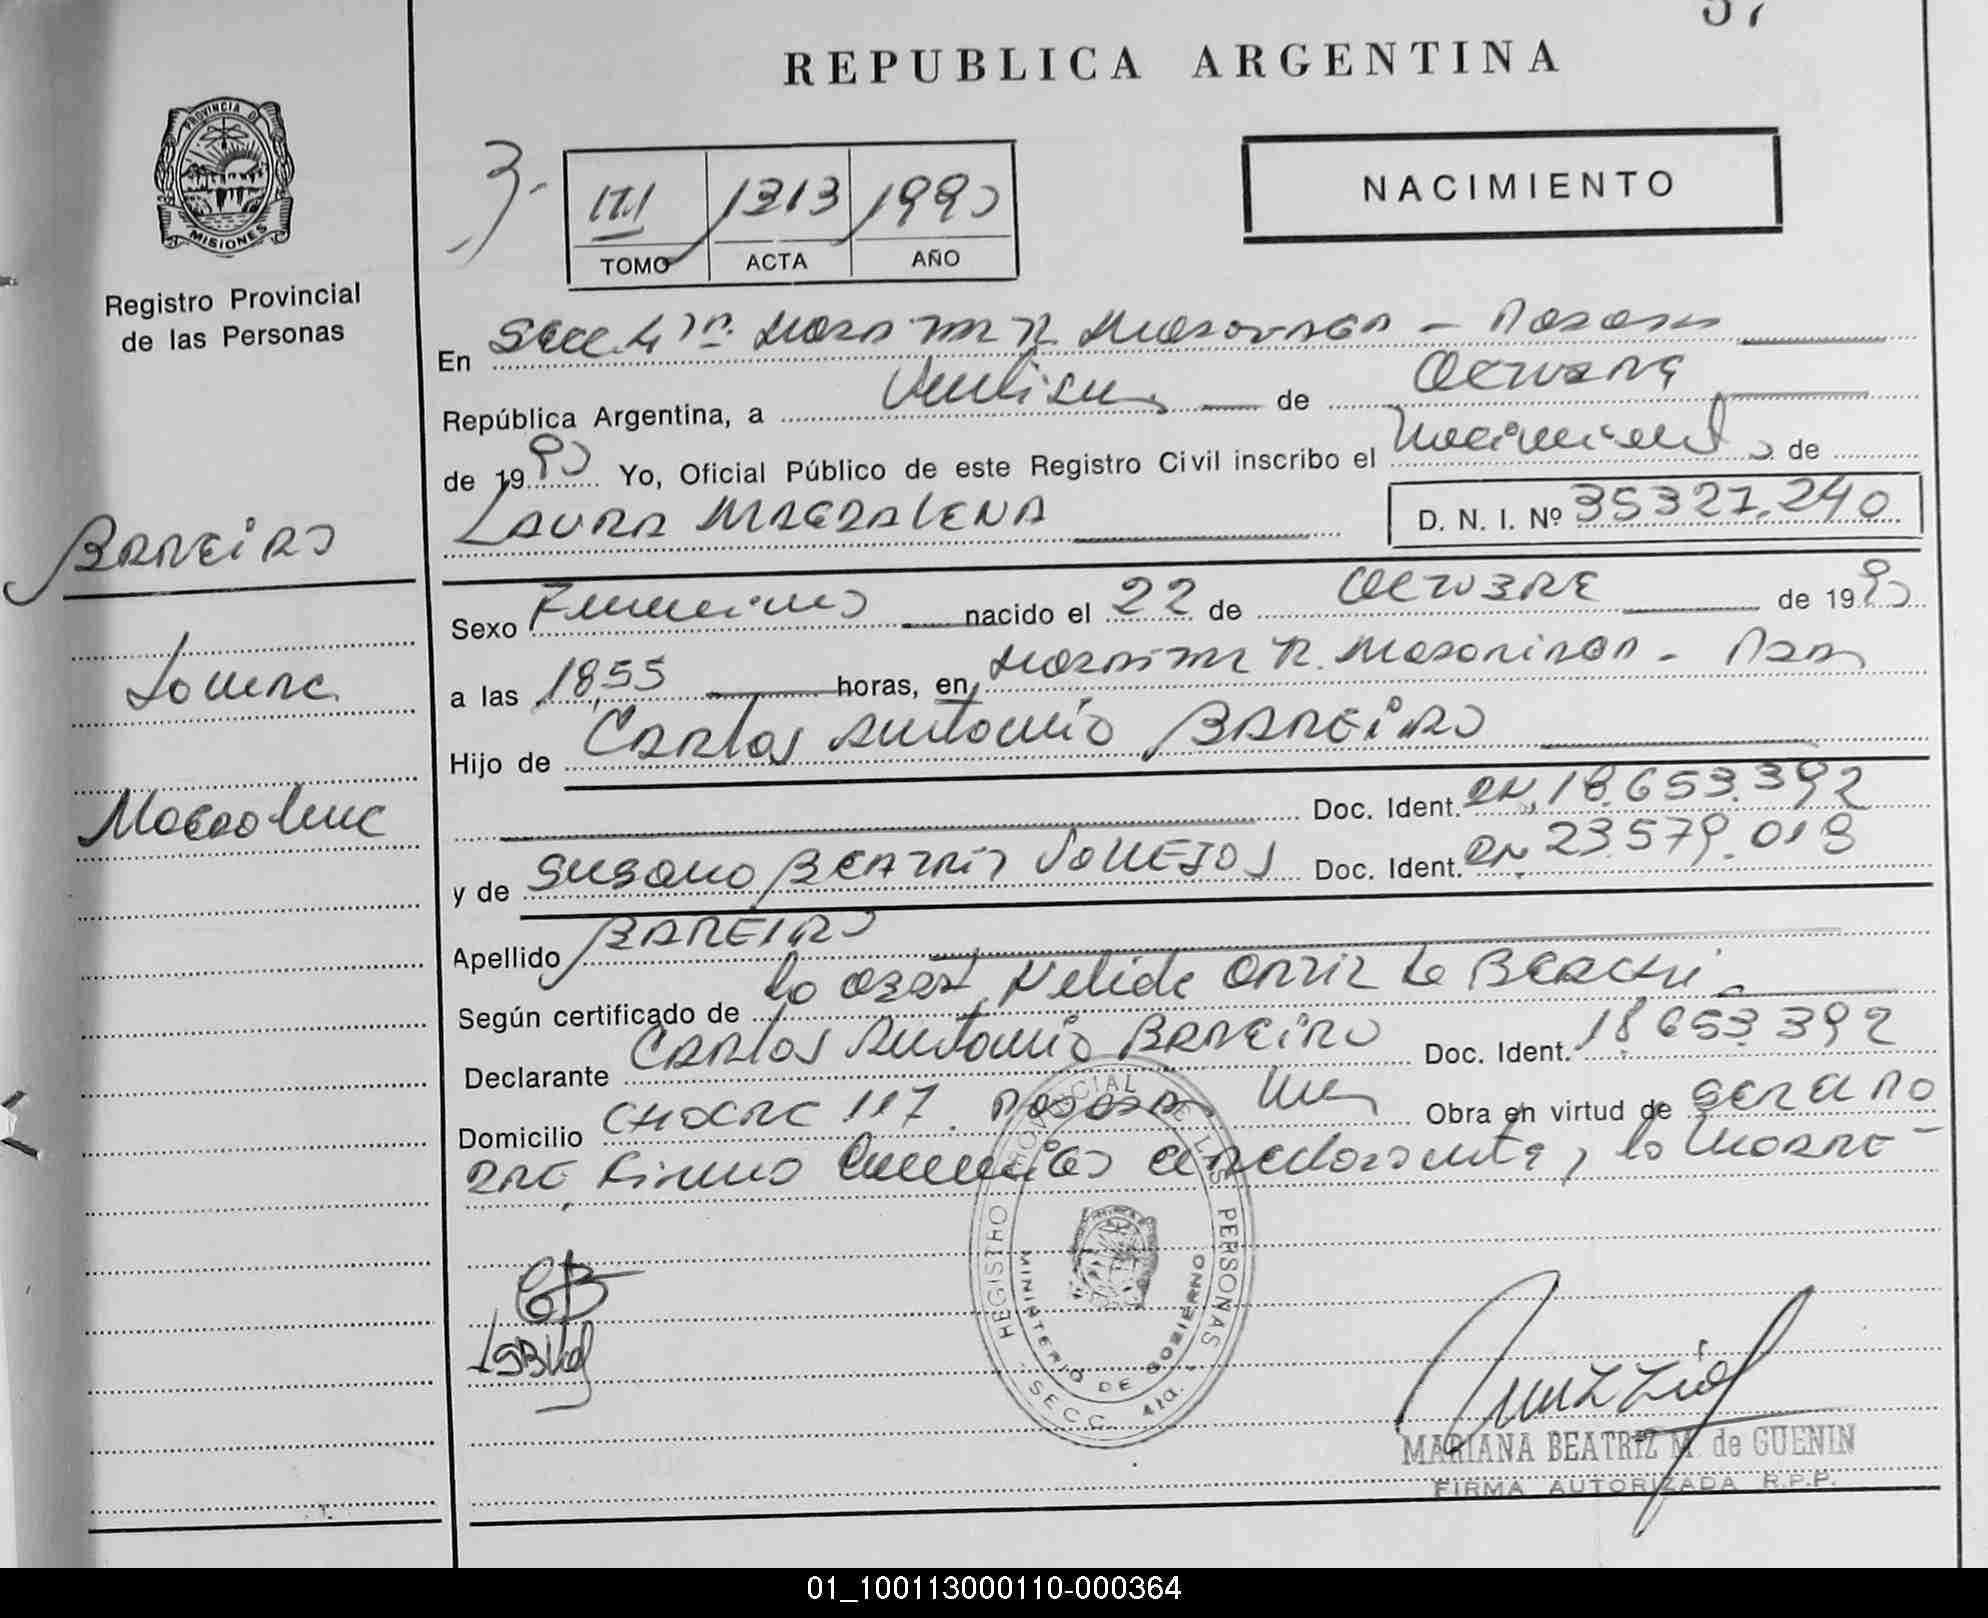 57
REPUBLICA ARGENTINA
PROVINCIA DE
MISIONES
Registro Provincial
de las Personas
3-
III 1313 1990
TOMO ACTA AÑO
NACIMIENTO
En Secc. 4ta. - Posadas
República Argentina, a de Octubre
de 1990 Yo, Oficial Público de este Registro Civil inscribo el Nacimiento de
LAURA MAGDALENA D. N. I. Nº 35327.240
BAREIRO
Laura
Magdalena
Sexo Femenino nacido el 22 de OCTUBRE de 1990
a las 18,55 horas, en
Hijo de Carlos Antonio BAREIRO
Doc. Ident. 18.653.392
y de Susana BEATRIZ VALLEJOS Doc. Ident. 23.579.018
Apellido BAREIRO
Según certificado de la obst. Nelida
Declarante Carlos Antonio BAREIRO Doc. Ident. 18653392
Domicilio 117. Posadas Mnes Obra en virtud de
firman la madre
REGISTRO PROVINCIAL DE LAS PERSONAS
MINISTERIO DE GOBIERNO
SECC. 4ta.
MARIANA BEATRIZ M. de GUENIN
FIRMA AUTORIZADA R.P.P.
01_100113000110-000364